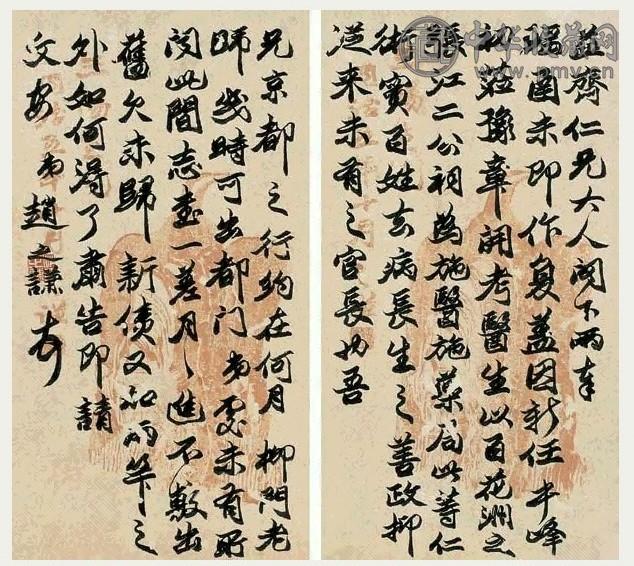 齋仁兄大人閣下兩奉
函未即作复蓋因新任半峰
莅豫章開考醫生以百花洲之
張江二公祠為施醫施藥局此等仁
術實百姓去病長生之善政抑
從来未有之官長也吾
兄京都之行約在何月柳門老
師幾時可出都门弟處未有所
闻此間志書一差月々進不敷出
舊欠未歸新债又加兩竿之
外如何得了肅告即請
文安 弟趙之謙頓首
中华收藏网
www.pmv.cn